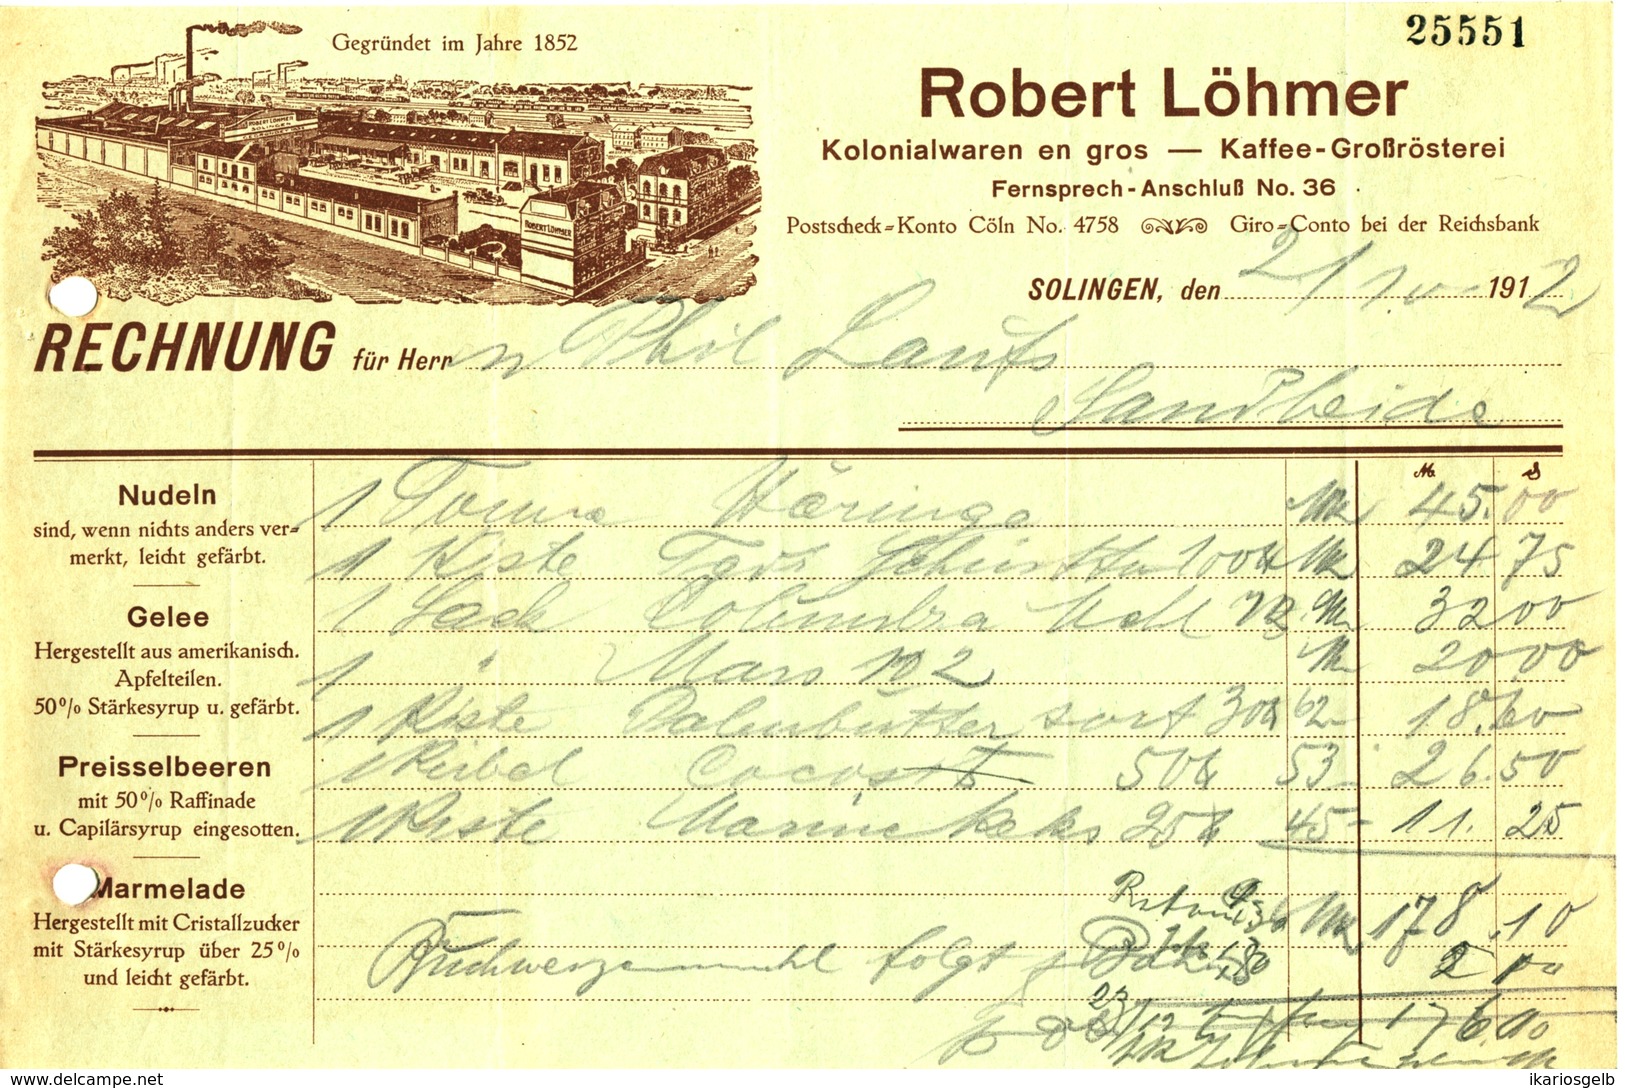 25551
Gegründet im Jahre 1852
ROBERT LÖHMER
SOLINGEN
ROBERT LÖHMER
Robert Löhmer
Kolonialwaren en gros — Kaffee-Großrösterei
Fernsprech-Anschluß No. 36
Postscheck-Konto Cöln No. 4758 Giro-Conto bei der Reichsbank
SOLINGEN, den 2/10 1912
RECHNUNG für Herrn Phil Laufs
Sandheide
M. S
1 Tonne Häringe Mk 45.00
1 Kiste 100 Mk 24 75
1 Sack Columbra Mehl Mk 32 00
1 " Mars 102 M 20 00
1 Kiste Palmbutter sort 30 62 18.60
1 Kübel Cocos 50 53 26.50
1 Kiste Marine keks 25 45 11.25
Mk 178.10
2 00
Buchweizenmehl folgt
176.10
Nudeln
sind, wenn nichts anders ver-
merkt, leicht gefärbt.
Gelee
Hergestellt aus amerikanisch.
Apfelteilen.
50% Stärkesyrup u. gefärbt.
Preisselbeeren
mit 50% Raffinade
u. Capilärsyrup eingesotten.
Marmelade
Hergestellt mit Cristallzucker
mit Stärkesyrup über 25%
und leicht gefärbt.
© delcampe.net
ikariosgelb